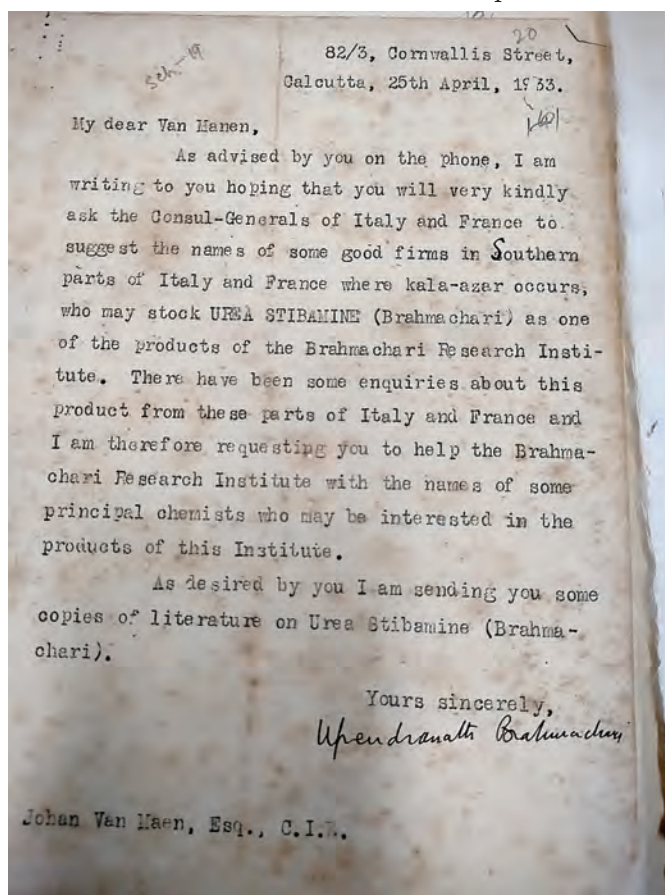 20
sch-19
82/3, Cornwallis Street,
Calcutta, 25th April, 1933.
My dear Van Manen,
As advised by you on the phone, I am
writing to you hoping that you will very kindly
ask the Consul-Generals of Italy and France to
suggest the names of some good firms in Southern
parts of Italy and France where kala-azar occurs,
who may stock UREA STIBAMINE (Brahmachari) as one
of the products of the Brahmachari Research Insti-
tute. There have been some enquiries about this
product from these parts of Italy and France and
I am therefore requesting you to help the Brahma-
chari Research Institute with the names of some
principal chemists who may be interested in the
products of this Institute.
As desired by you I am sending you some
copies of literature on Urea Stibamine (Brahma-
chari).
Yours sincerely,
Upendranath Brahmachari
Johan Van Maen, Esq., C.I.E.